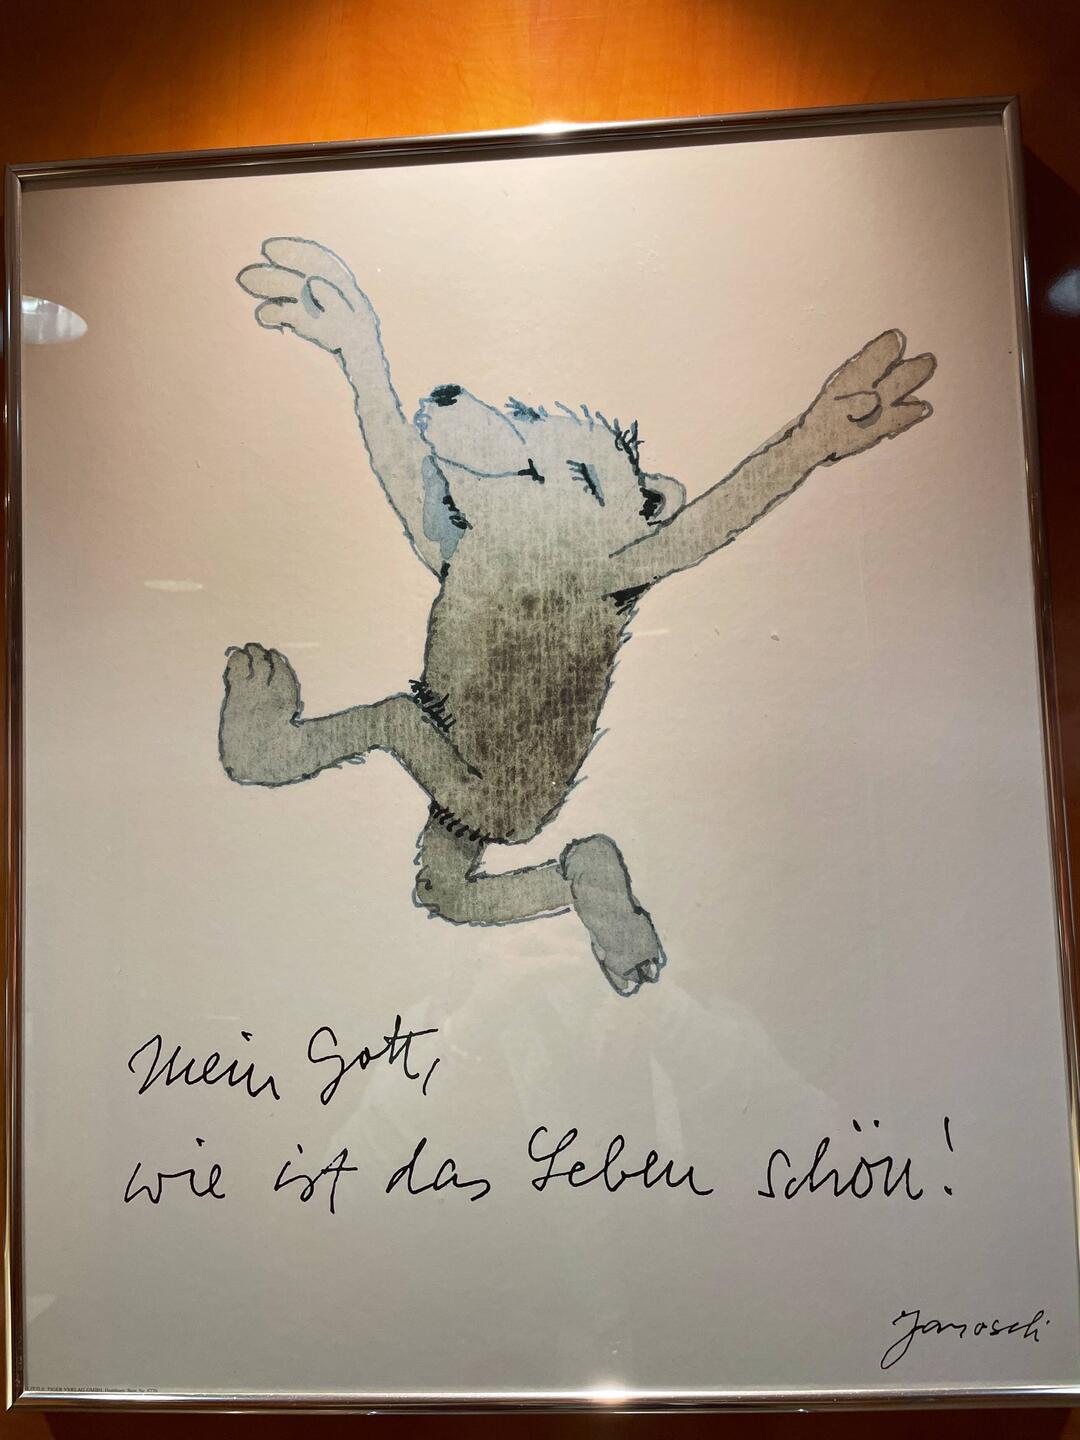 Mein Gott,
wie ist das Leben schön!
Janosch
LITTLE TIGER VERLAG GMBH, Hamburg